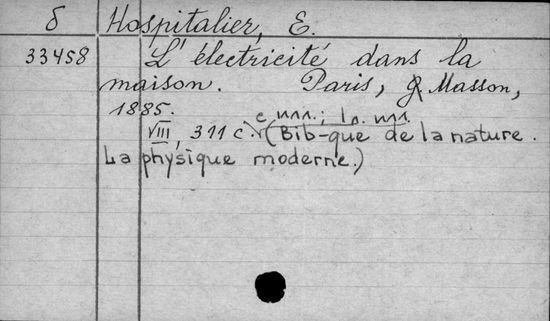 δ Hospitalier, E.
33458 L'électricité dans la
maison. Paris, G. Masson,
1885.
с илл.; 1 л. илл.
VIII, 311 с. (Bib-que de la nature.
La physique moderne.)